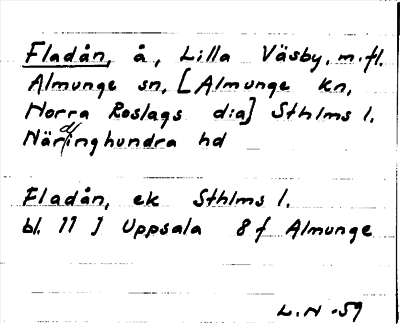 Fladån, å, Lilla Väsby, m.fl.
Almunge sn, [Almunge kn,
Norra Roslags dia] Sthlms l.
Närdinghundra hd
Fladån, ek Sthlms l.
bl. 77 J Uppsala 8 f Almunge
L.N -59